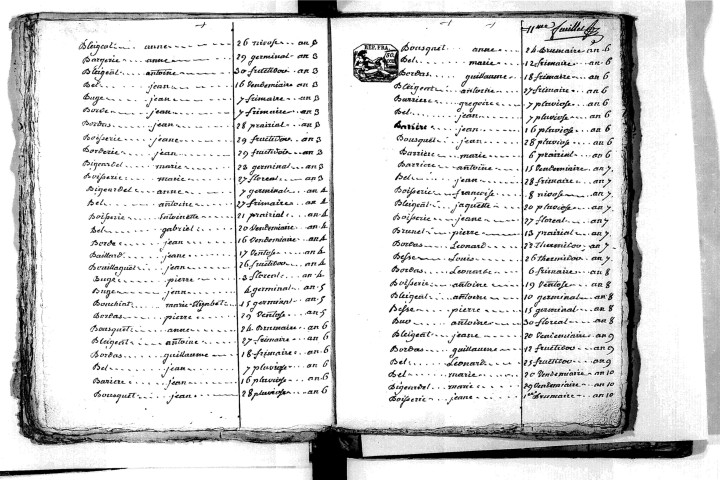 Bleigeat anne 26 nivose an 3
Bargerie anne 29 germinal an 3
Bleigeat antoine 30 fructidor an 3
Bel jean 16 Vendemiaire an 3
Buge jean 7 frimaire an 3
Borde jean 7 frimaire an 3
Bordas jean 28 prairial an 3
Boisserie jeane 29 fructidor an 3
Borderie jean 29 fructidor an 3
Bigeardel marie 23 germinal an 3
Boisserie marie 27 floreal an 3
Bigeardel anne 7 germinal an 4
Bel antoine 27 frimaire an 4
Boisserie antoinette 21 prairial an 4
Bel gabriel 20 Vendemiaire an 4
Borde jean 16 Vendemiaire an 4
Baillard jeane 17 Ventose an 4
jean 26 fructidor an 4
Buge pierre 3 floreal an 4
Buge jean 4 germinal an 5
marie Elizabet 15 germinal an 5
Bordas pierre 29 Ventose an 5
Bousquet anne 24 Brumaire an 6
Bleigeat antoine 27 frimaire an 6
Bordas guillaume 18 frimaire an 6
Bel jean 7 pluviose an 6
Bariere jean 16 pluviose an 6
Bousquet jean 28 pluviose an 6
11me feuillet
REP. FRA.
Bousquet anne 24 Brumaire an 6
Bel marie 12 frimaire an 6
Bordas guillaume 18 frimaire an 6
Bleigeat antoine 27 frimaire an 6
Barriere gregoire 7 pluviose an 6
Bel jean 7 pluviose an 6
Barriere jean 16 pluviose an 6
Bousquet jean 28 pluviose an 6
Barriere marie 6 prairial an 6
Barriere antoine 15 Vendemiaire an 7
Bel jean 28 frimaire an 7
Boisserie françoise 8 nivose an 7
Bleigeat jaquette 20 pluviose an 7
Boisserie jeane 27 floreal an 7
Brunet pierre 13 prairial an 7
Bordas Leonard 22 thermidor an 7
Besse Louis 26 thermidor an 7
Bordas Leonarde 6 frimaire an 8
Boisserie antoine 19 Ventose an 8
Bleigeat antoine 10 germinal an 8
Besse pierre 15 germinal an 8
antoine 30 floreal an 8
Bleigeat jeane 20 Vendemiaire an 9
Bordas guillaume 12 fructidor an 9
Bel Leonard 25 fructidor an 9
Bel marie 20 Vendemiaire an 10
Bigeardel marie 29 Vendemiaire an 10
Boisserie jeane 1er Brumaire an 10